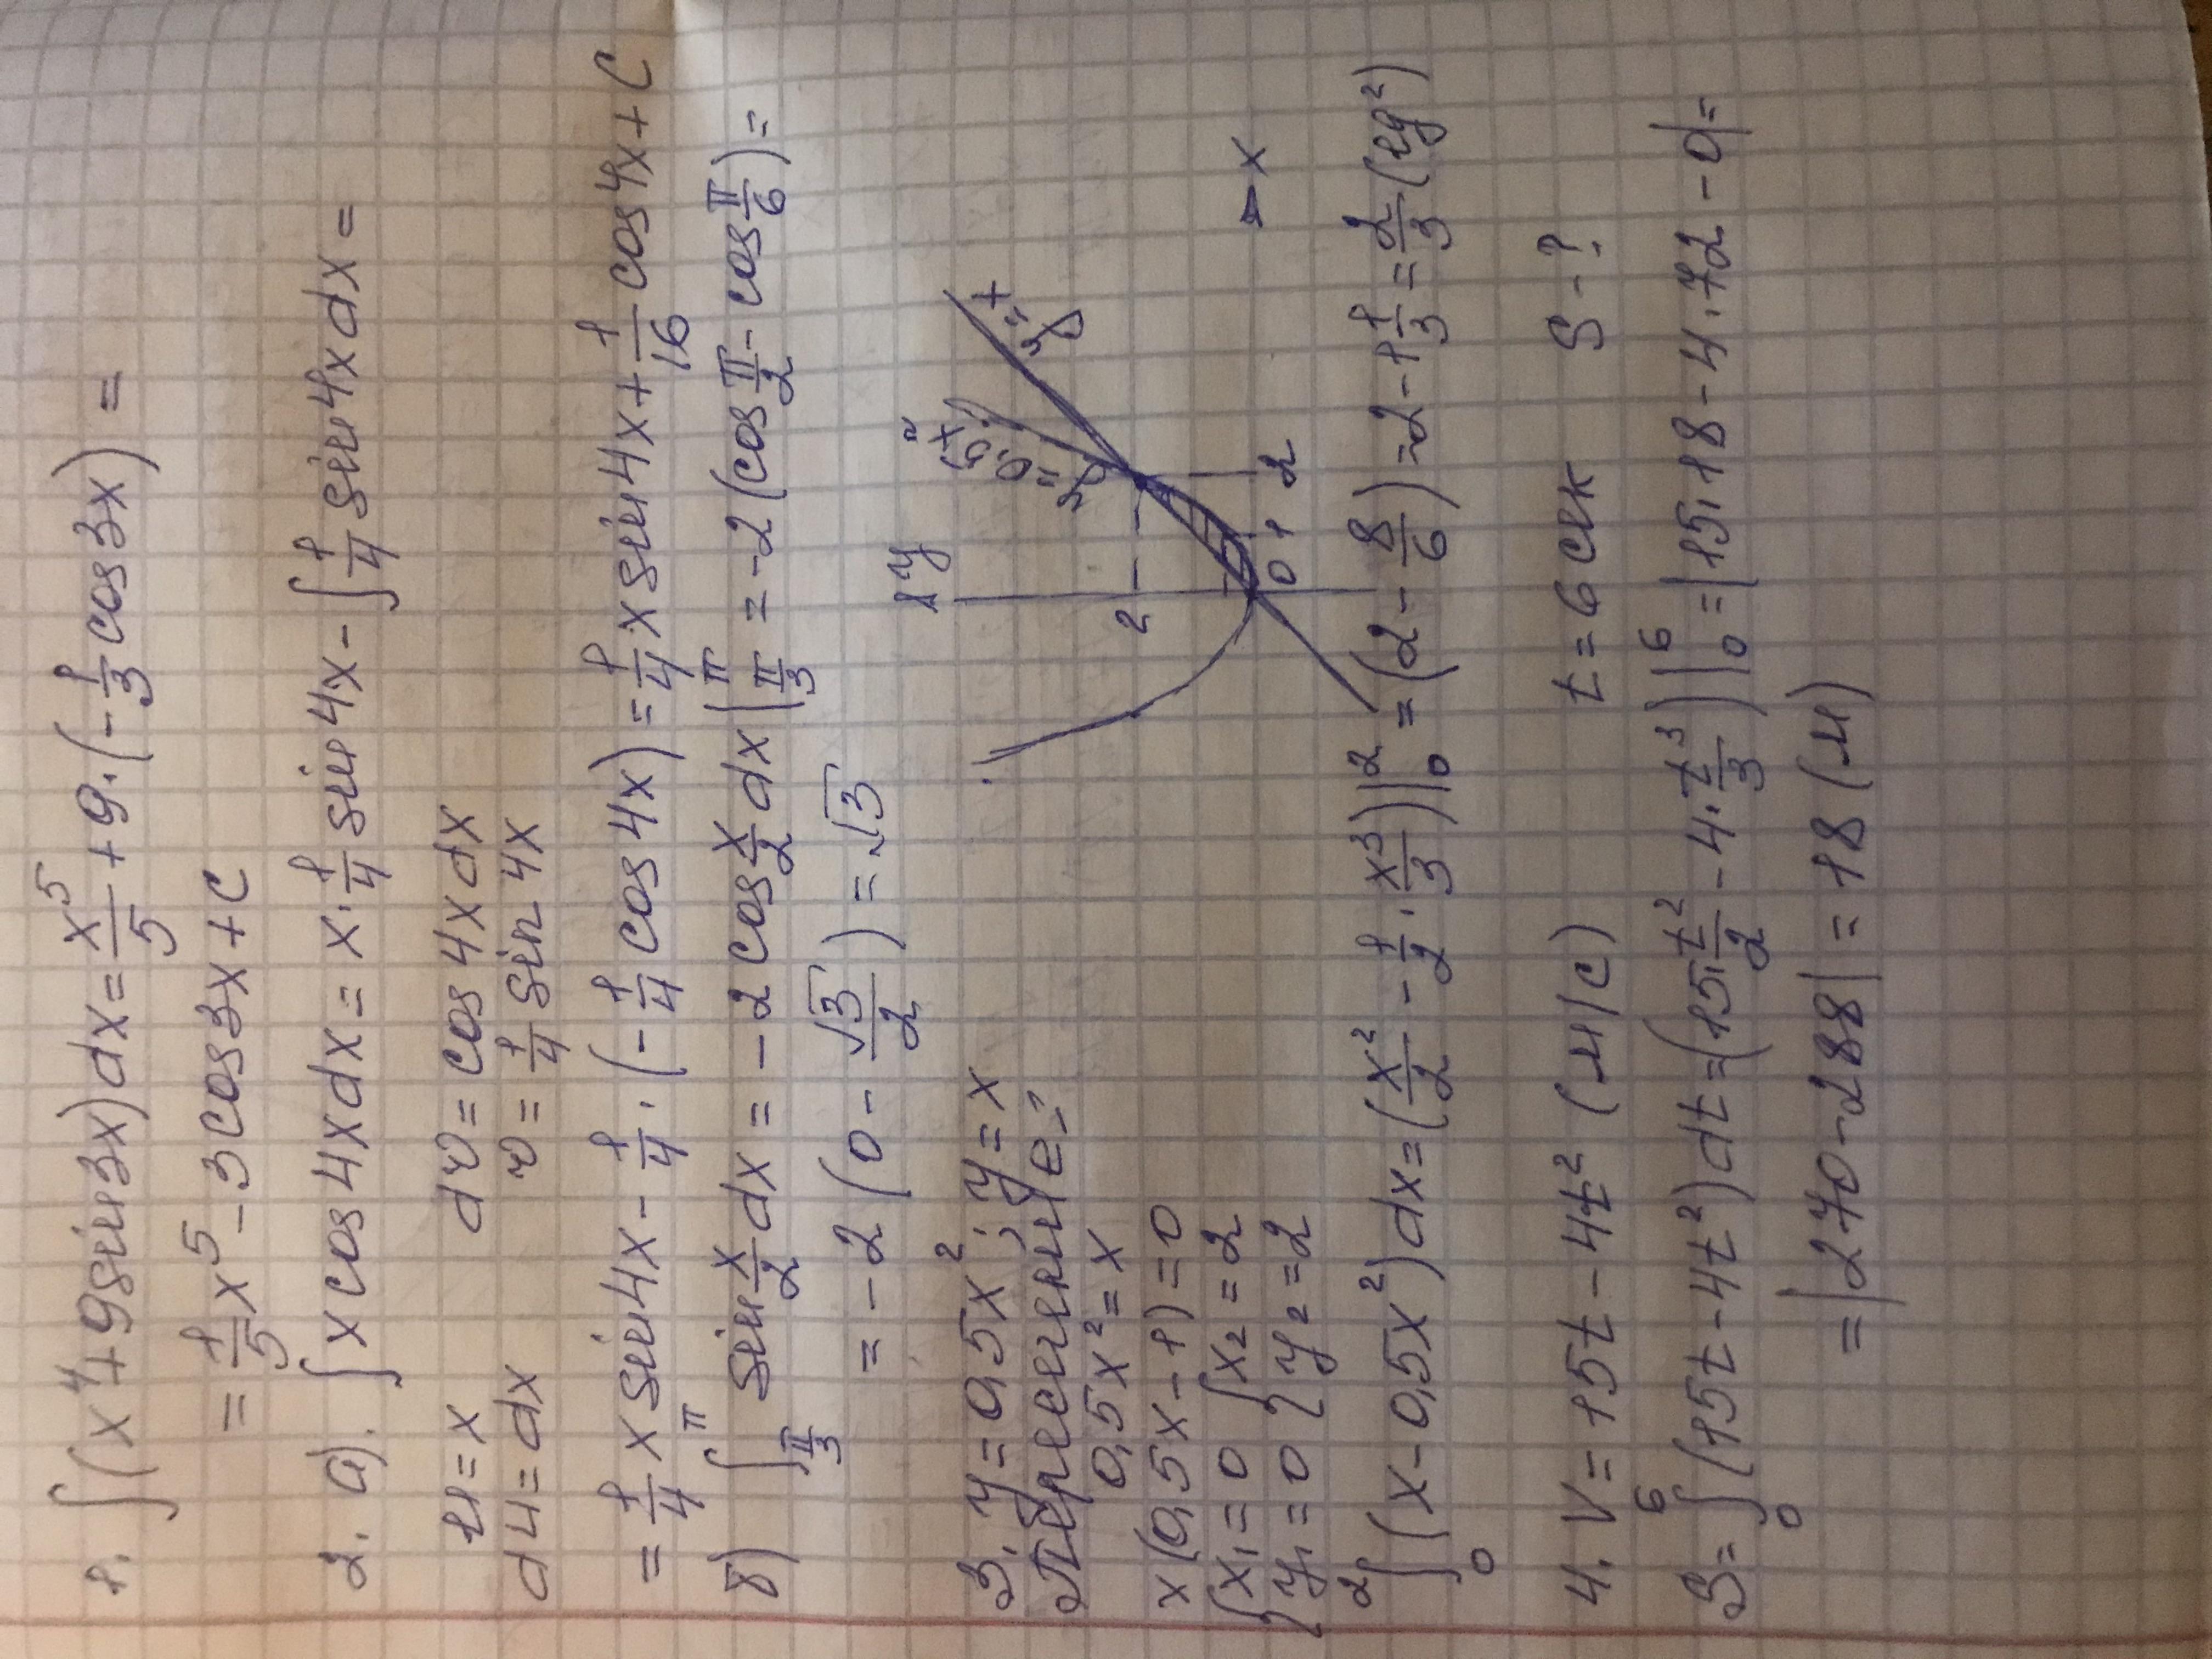 1. ∫(x⁴+9sin3x)dx = x⁵/5 + 9·(-1/3 cos3x) =
= 1/5 x⁵ - 3cos3x + C
2. а). ∫x cos4x dx = x·1/4 sin4x - ∫1/4 sin4x dx =
u = x dv = cos4x dx
du = dx v = 1/4 sin 4x
= 1/4 x sin4x - 1/4·(-1/4 cos4x) = 1/4 x sin4x + 1/16 cos4x + C
б) ∫_{π/3}^{π} sin x/2 dx = -2 cos x/2 dx |_{π/3}^{π} = -2(cos π/2 - cos π/6) =
= -2(0 - √3/2) = √3
3. y = 0,5x²; y = x
Пересечние:
0,5x² = x
x(0,5x-1) = 0
{x₁ = 0 {x₂ = 2
{y₁ = 0 {y₂ = 2
y
y = 0,5x²
y = x
2
0 1 2
x
∫₀²(x - 0,5x²)dx = (x²/2 - 1/2·x³/3)|₀² = (2 - 8/6) = 2 - 1 1/3 = 2/3 (ед²)
4. V = 15t - 4t² (м/с) t = 6 сек S - ?
S = ∫₀⁶(15t - 4t²)dt = (15·t²/2 - 4·t³/3)|₀⁶ = |15·18 - 4·72 - 0| =
= |270 - 288| = 18 (м)